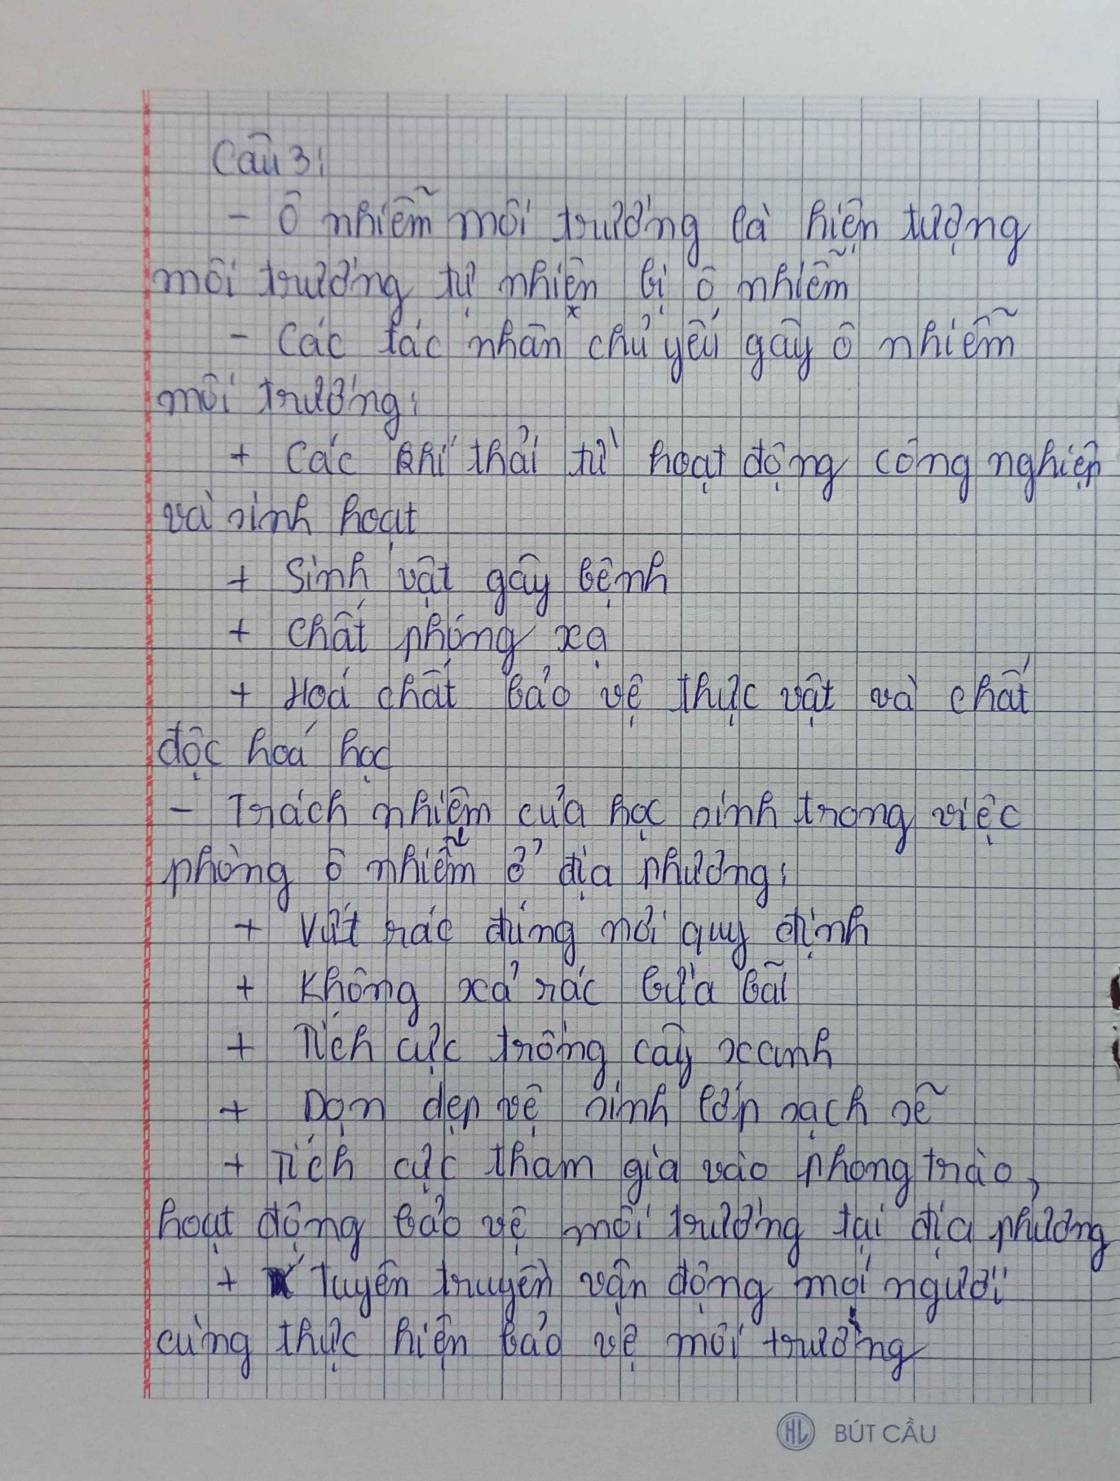 Câu 3:
- Ô nhiễm môi trường là hiện tượng
môi trường tự nhiên bị ô nhiễm
- Các tác nhân chủ yếu gây ô nhiễm
môi trường:
+ Các khí thải từ hoạt động công nghiệp
và sinh hoạt
+ Sinh vật gây bệnh
+ Chất phóng xạ
+ Hoá chất bảo vệ thực vật và chất
độc hoá học
- Trách nhiệm của học sinh trong việc
phòng ô nhiễm ở địa phương:
+ Vứt rác đúng nơi quy định
+ Không xả rác bừa bãi
+ Tích cực trồng cây xanh
+ Dọn dẹp vệ sinh lớp sạch sẽ
+ Tích cực tham gia vào phong trào,
hoạt động bảo vệ môi trường tại địa phương
+ Tuyên truyền vận động mọi người
cùng thực hiện bảo vệ môi trường
HL BÚT CẦU